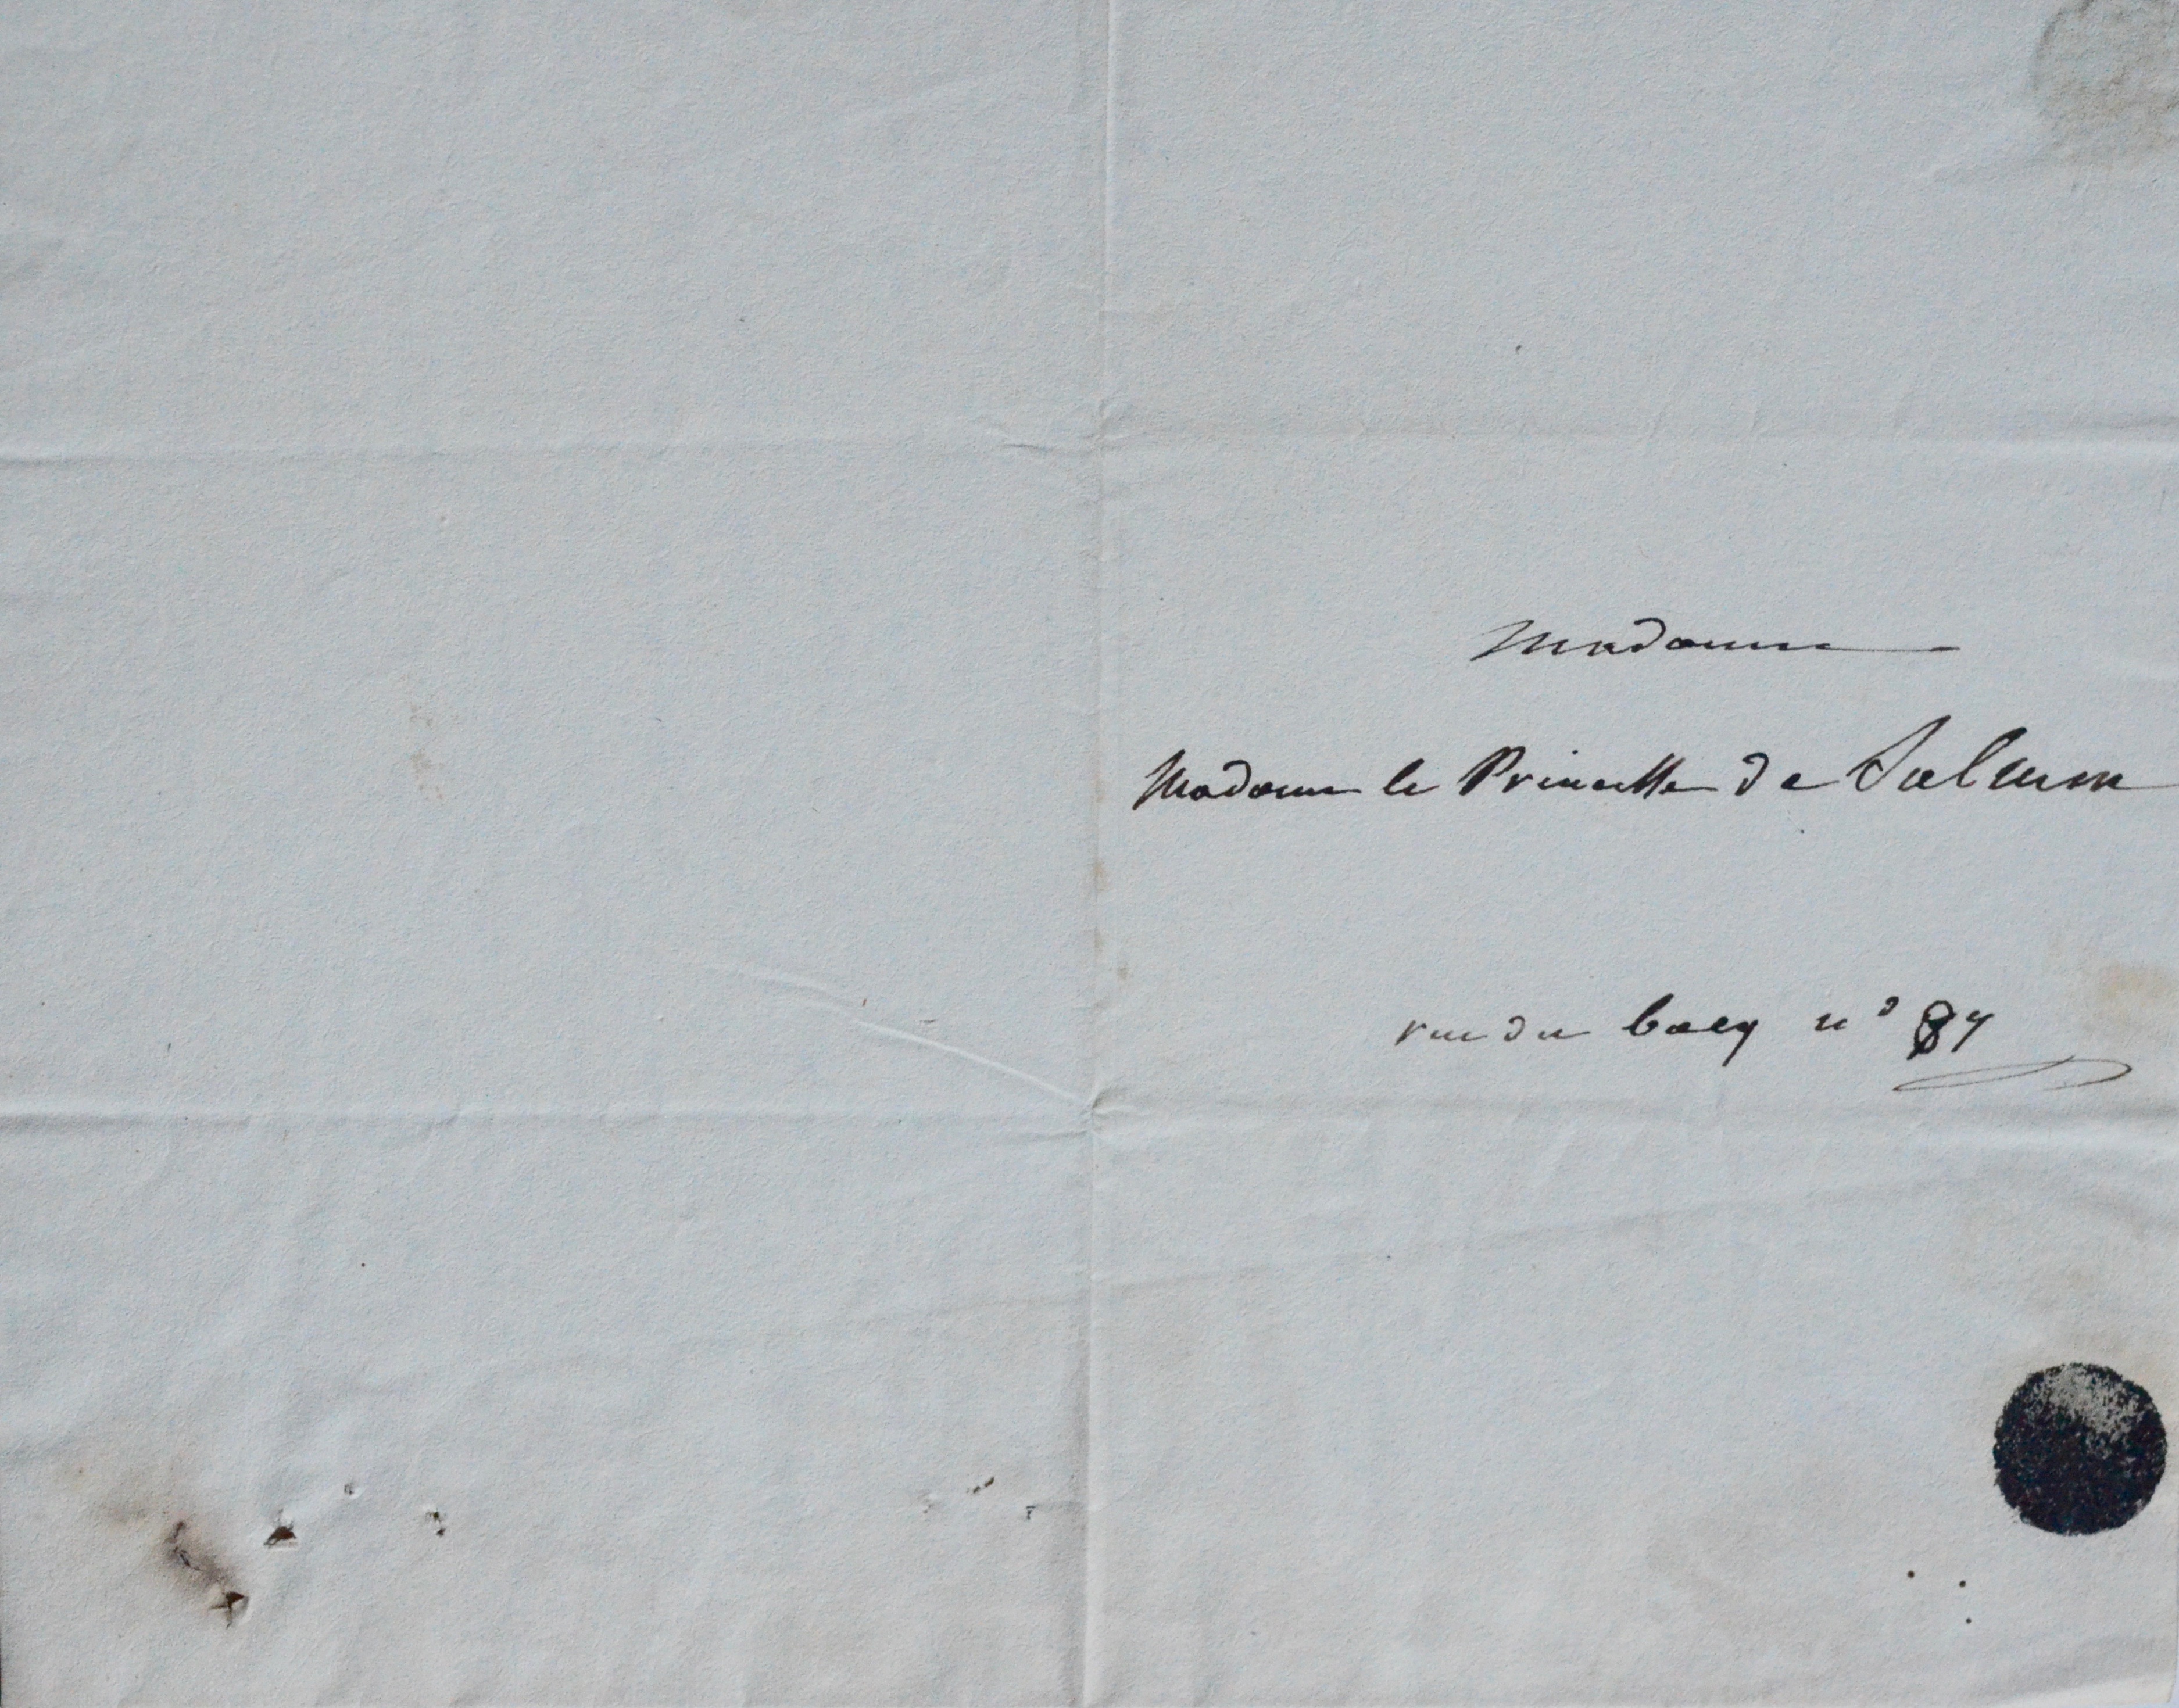 Madame
Madame la Princesse de Salm
rue du bacq n°